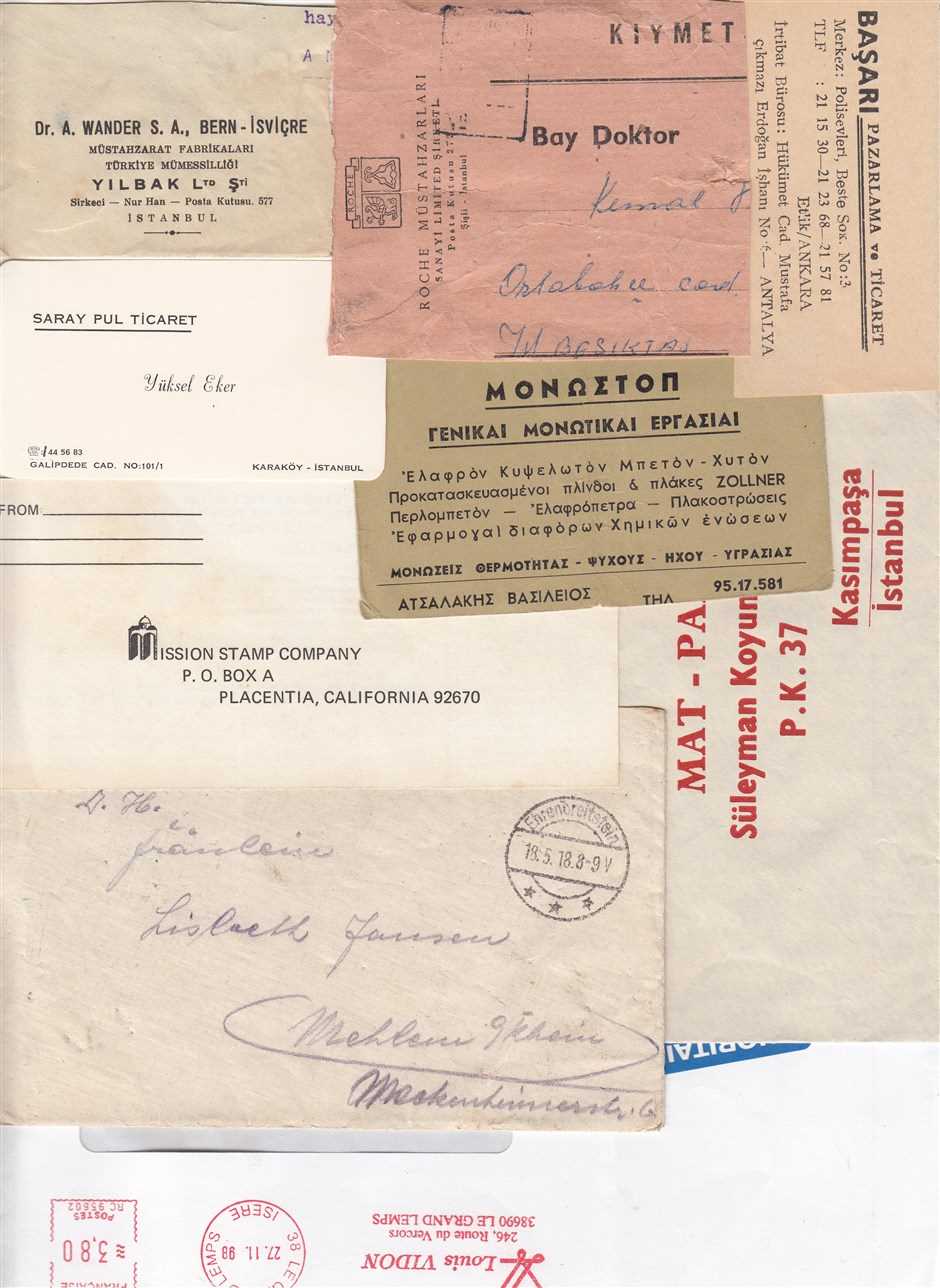 hay
A
Dr. A. WANDER S. A., BERN - İSVİÇRE
MÜSTAHZARAT FABRİKALARI
TÜRKİYE MÜMESSİLLİĞİ
YILBAK LTD ŞTİ
Sirkeci — Nur Han — Posta Kutusu. 577
İSTANBUL
ROCHE
ROCHE MÜSTAHZARLARI
SANAYİ LİMİTED ŞİRKETİ
Posta Kutusu 27
Şişli - İstanbul
KIYMET
Bay Doktor
Kemal
Ortabahçe cad.
BEŞIKTAŞ
BAŞARI PAZARLAMA ve TİCARET
Merkez: Polisevleri, Beste Sok. No:3
TLF : 21 15 30—21 23 68—21 57 81
Etlik/ANKARA
İrtibat Bürosu: Hükümet Cad. Mustafa
çıkmazı Erdoğan İşhanı No — ANTALYA
SARAY PUL TİCARET
Yüksel Eker
44 56 83
GALİPDEDE CAD. NO:101/1
KARAKÖY - İSTANBUL
ΜΟΝΩΣΤΟΠ
ΓΕΝΙΚΑΙ ΜΟΝΩΤΙΚΑΙ ΕΡΓΑΣΙΑΙ
Ἐλαφρὸν Κυψελωτὸν Μπετὸν - Χυτὸν
Προκατασκευασμένοι πλίνθοι & πλάκες ZOLLNER
Περλομπετὸν — Ἐλαφρόπετρα — Πλακοστρώσεις
Ἐφαρμογαὶ διαφόρων Χημικῶν ἑνώσεων
ΜΟΝΩΣΕΙΣ ΘΕΡΜΟΤΗΤΑΣ - ΨΥΧΟΥΣ - ΗΧΟΥ - ΥΓΡΑΣΙΑΣ
ΑΤΣΑΛΑΚΗΣ ΒΑΣΙΛΕΙΟΣ
ΤΗΛ 95.17.581
FROM:
MISSION STAMP COMPANY
P. O. BOX A
PLACENTIA, CALIFORNIA 92670
MAT - PA
Süleyman Koyun
P.K. 37
Kasımpaşa
İstanbul
D. H.
Fräulein
Lisbeth Jansen
Mehlem a/Rhein
Meckenheimerstr. 6
Ehrenbreitstein
18.5.18.8-9V
ORITAI
FRANÇAISE
3,80
POSTES
RC 95602
38 LE G
LEMPS
27.11.98
ISERE
Louis VIDON
246, Route du Vercors
38690 LE GRAND LEMPS